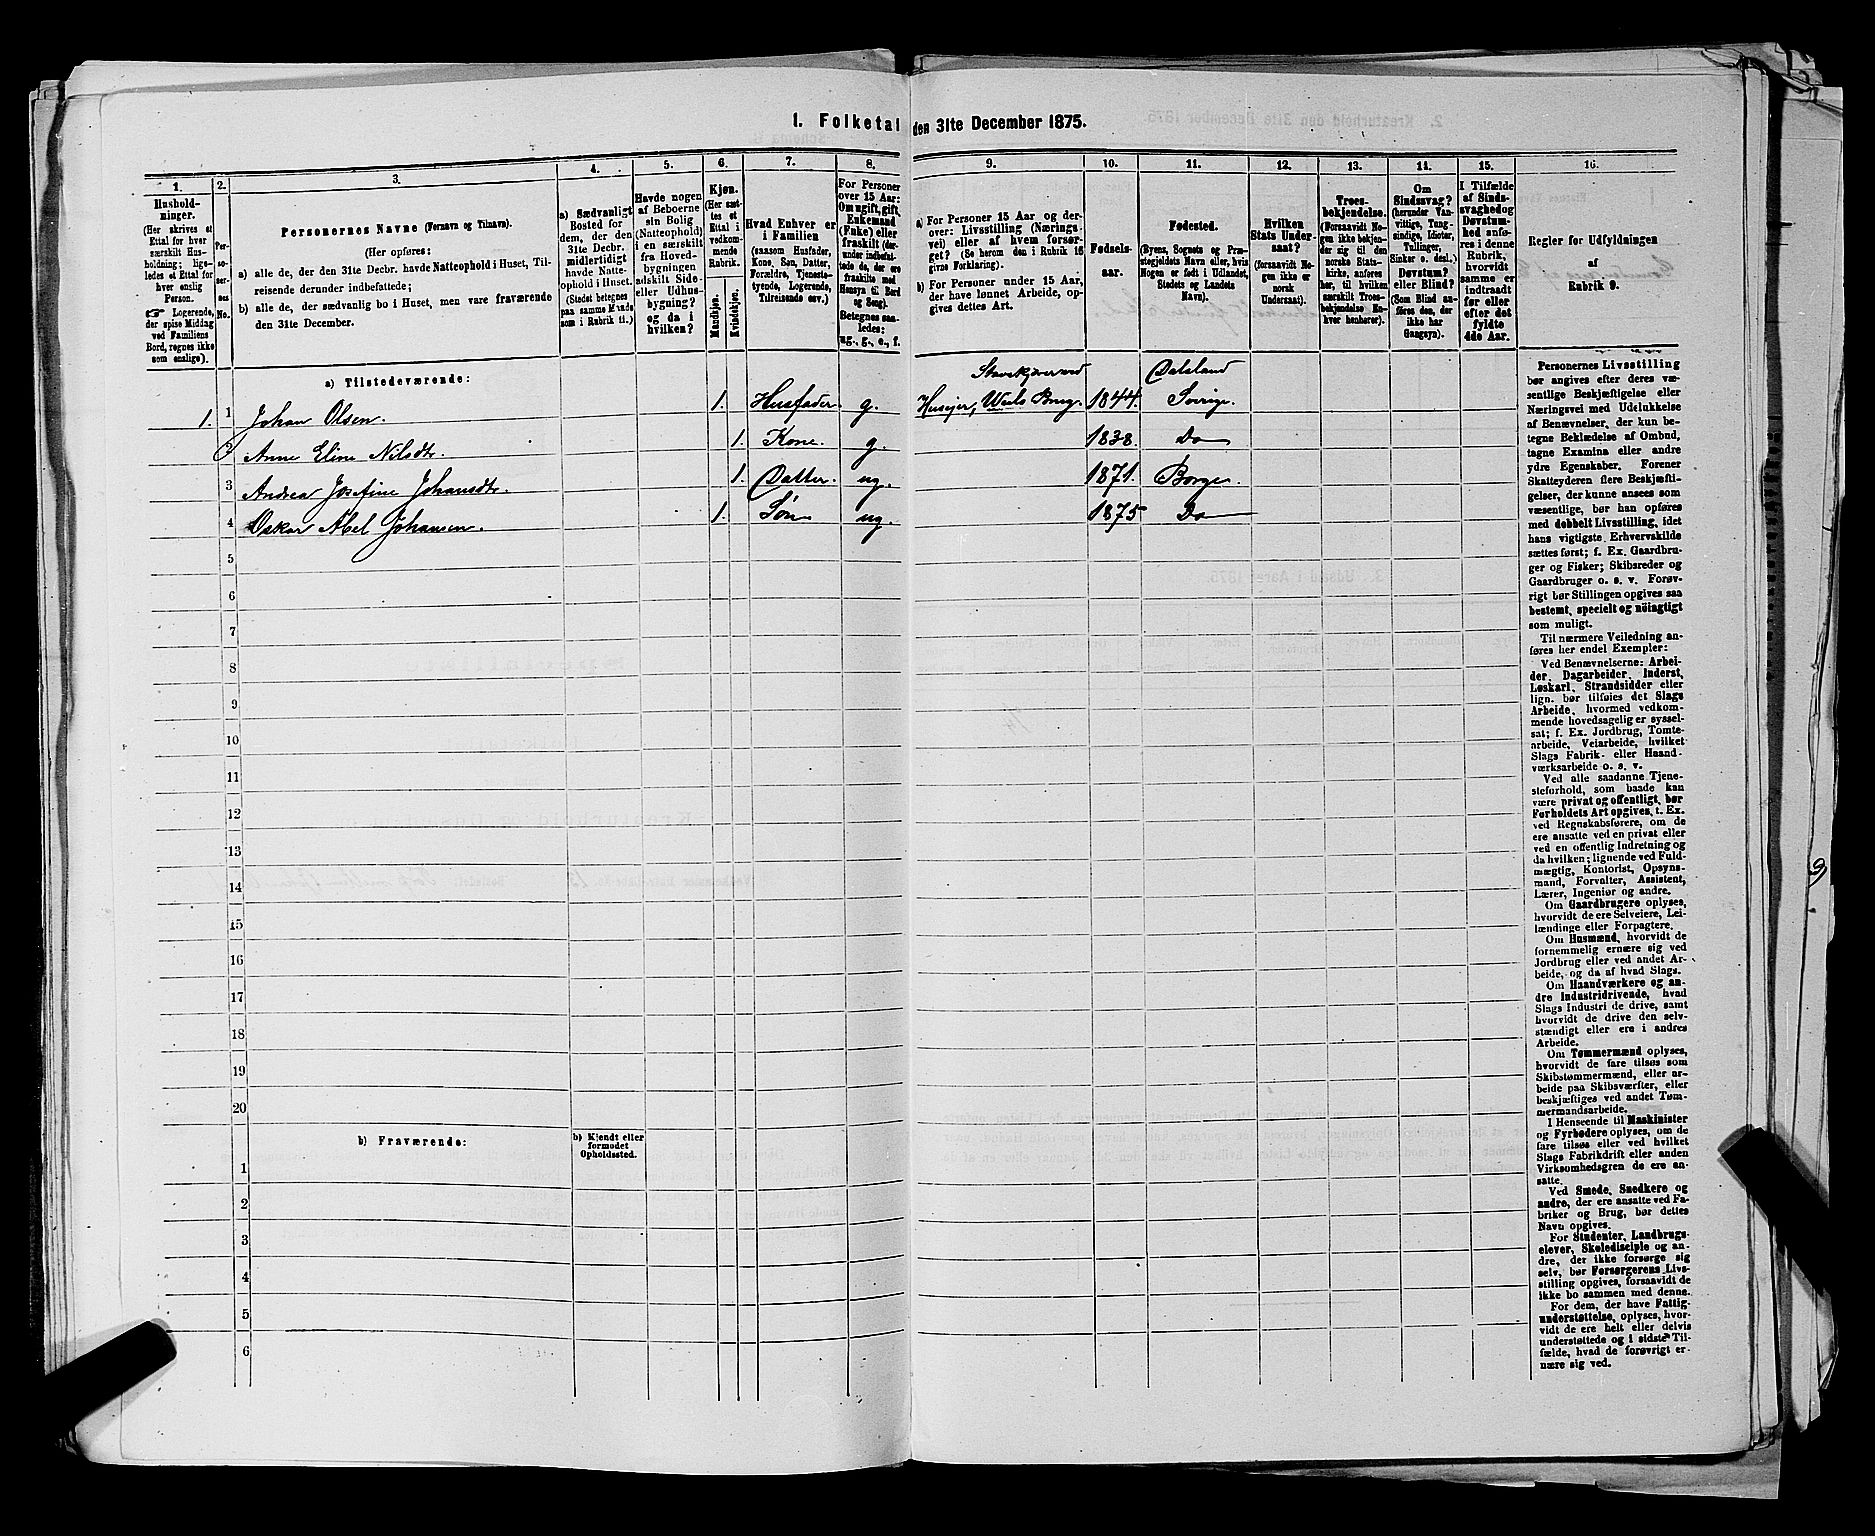 1. Folketal den 31te December 1875.
1. 2. 3. 4. 5. 6. 7. 8. 9. 10. 11. 12. 13. 14. 15. 16.
Hushold-
ninger.
(Her skrives et
Ettal for hver
særskilt Hus-
holdning; lige-
ledes et Ettal for
hver enslig
Person.
☞ Logerende,
der spise Middag
ved Familiens
Bord, regnes ikke
som enslige).
Per-
so-
ner-
nes
No.
Personernes Navne (Fornavn og Tilnavn).
(Her opføres:
a) alle de, der den 31te Decbr. havde Natteophold i Huset, Til-
reisende derunder indbefattede;
b) alle de, der sædvanlig bo i Huset, men vare fraværende
den 31te December.
a) Sædvanligt
Bosted for
dem, der den
31te Decbr.
midlertidigt
havde Natte-
ophold i Huset.
(Stedet betegnes
paa samme Maade
som i Rubrik 11.)
Havde nogen
af Beboerne
sin Bolig
(Natteophold)
i en særskilt
fra Hoved-
bygningen
adskilt Side-
eller Udhus-
bygning?
og da i
hvilken?
Kjøn.
(Her sæt-
tes et
Ettal i
vedkom-
mende
Rubrik.
Mandkjøn.
Kvindekjøn.
Hvad Enhver er
i Familien
(saasom Husfader,
Kone, Søn, Datter,
Forældre, Tjeneste-
tyende, Logerende,
Tilreisende osv.)
For Personer
over 15 Aar:
Om ugift, gift,
Enkemand
(Enke) eller
fraskilt (der-
under indbefat-
tede de, der ere
fraskilte med
Hensyn til Bord
og Seng).
Betegnes saa-
ledes:
ug., g., e., f.
a) For Personer 15 Aar og der-
over: Livsstilling (Nærings-
vei) eller af hvem forsør-
get? (Se herom den i Rubrik 16
givne Forklaring).
b) For Personer under 15 Aar,
der have lønnet Arbeide, op-
gives dettes Art.
Fødsels-
aar.
Fødested.
(Byens, Sognets og Præ-
stegjeldets Navn eller, hvis
Nogen er født i Udlandet,
Stedets og Landets
Navn).
Hvilken
Stats Under-
saat?
(forsaavidt No-
gen ikke er
norsk
Undersaat).
Troes-
bekjendelse.
(Forsaavidt No-
gen ikke bekjen-
der sig til den
norske Stats-
kirke, anføres
her, til hvilken
særskilt Troes-
bekjendelse En-
hver henhører).
Om
Sindssvag?
(herunder Van-
vittige, Tung-
sindige, Idioter,
Tullinger,
Sinker o. desl.)
Døvstum?
eller Blind?
(Som Blind an-
føres den, der
ikke har
Gangsyn).
I Tilfælde
af Sinds-
svaghed og
Døvstum-
hed anfø-
res i denne
Rubrik,
hvorvidt
samme er
indtraadt
før eller
efter det
fyldte
4de Aar.
Regler for Udfyldningen
af
Rubrik 9.
a) Tilstedeværende:
Dalsland
1. 1 Johan Olsen. 1. Husfader. g. Husejer, Brug. 1844. Sverige.
2 Anne Eline Nilsdtr. 1. Kone. g. 1838. Do
3 Andrea Josefine Johansdtr. 1. Datter. ug. 1871. Borge.
4 Oskar Abel Johansen. 1. Søn ug. 1875 Do
5
6
7
8
9
10
11
12
13
14
15
16
17
18
19
20
b) Fraværende:
b) Kjendt eller
formodet
Opholdssted.
1
2
3
4
5
6
Personernes Livsstilling
bør angives efter deres væ-
sentlige Beskjæftigelse eller
Næringsvei med Udelukkelse
af Benævnelser, der kun be-
tegne Beklædelse af Ombud,
tagne Examina eller andre
ydre Egenskaber. Forener
Skatteyderen flere Beskjæfti-
gelser, der kunne ansees som
væsentlige, bør han opføres
med dobbelt Livsstilling, idet
hans vigtigste Erhvervskilde
sættes først; f. Ex. Gaardbru-
ger og Fisker; Skibsreder og
Gaardbruger o. s. v. Forøv-
rigt bør Stillingen opgives saa
bestemt, specielt og nöiagtigt
som muligt.
Til nærmere Veiledning an-
føres her endel Exempler:
Ved Benævnelserne: Arbei-
der, Dagarbeider, Inderst,
Løskarl, Strandsidder eller
lign. bør tilføies det Slags
Arbeide, hvormed vedkom-
mende hovedsagelig er syssel-
sat; f. Ex. Jordbrug, Tomte-
arbeide, Veiarbeide, hvilket
Slags Fabrik- eller Haand-
værksarbeide o. s. v.
Ved alle saadanne Tjene-
steforhold, som baade kan
være privat og offentligt, bør
Forholdets Art opgives, t. Ex.
ved Regnskabsførere, om de
ere ansatte ved en privat eller
ved en offentlig Indretning og
da hvilken; lignende ved Fuld-
mægtig, Kontorist, Opsyns-
mand, Forvalter, Assistent,
Lærer, Ingeniør og andre.
Om Gaardbrugere oplyses,
hvorvidt de ere Selveiere, Lei-
lændinge eller Forpagtere.
Om Husmænd, hvorvidt de
fornemmelig ernære sig ved
Jordbrug eller ved andet Ar-
beide, og da af hvad Slags.
Om Haandværkere og an-
dre Industridrivende, hvad
Slags Industri de drive, samt
hvorvidt de drive den selv-
stændigt eller ere i andres
Arbeide.
Om Tømmermænd oplyses,
hvorvidt de fare tilsøs som
Skibstømmermænd, eller ar-
beide paa Skibsværfter, eller
beskjæftiges ved andet Tøm-
mermandsarbeide.
I Henseende til Maskinister
og Fyrbødere oplyses, om de
fare tilsøs eller ved hvilket
Slags Fabrikdrift eller anden
Virksomhedsgren de ere an-
satte.
Ved Smede, Snedkere og
andre, der ere ansatte ved Fa-
briker og Brug, bør dettes
Navn opgives.
For Studenter, Landbrugs-
elever, Skoledisciple og an-
dre, der ikke forsørge sig
selv, bør Forsørgerens Livs-
stilling opgives, forsaavidt de
ikke bo sammen med denne.
For dem, der have Fattig-
understøttelse, oplyses, hvor-
vidt de ere helt eller delvis
understøttede og i sidste Til-
fælde, hvad de forøvrigt er-
nære sig ved.